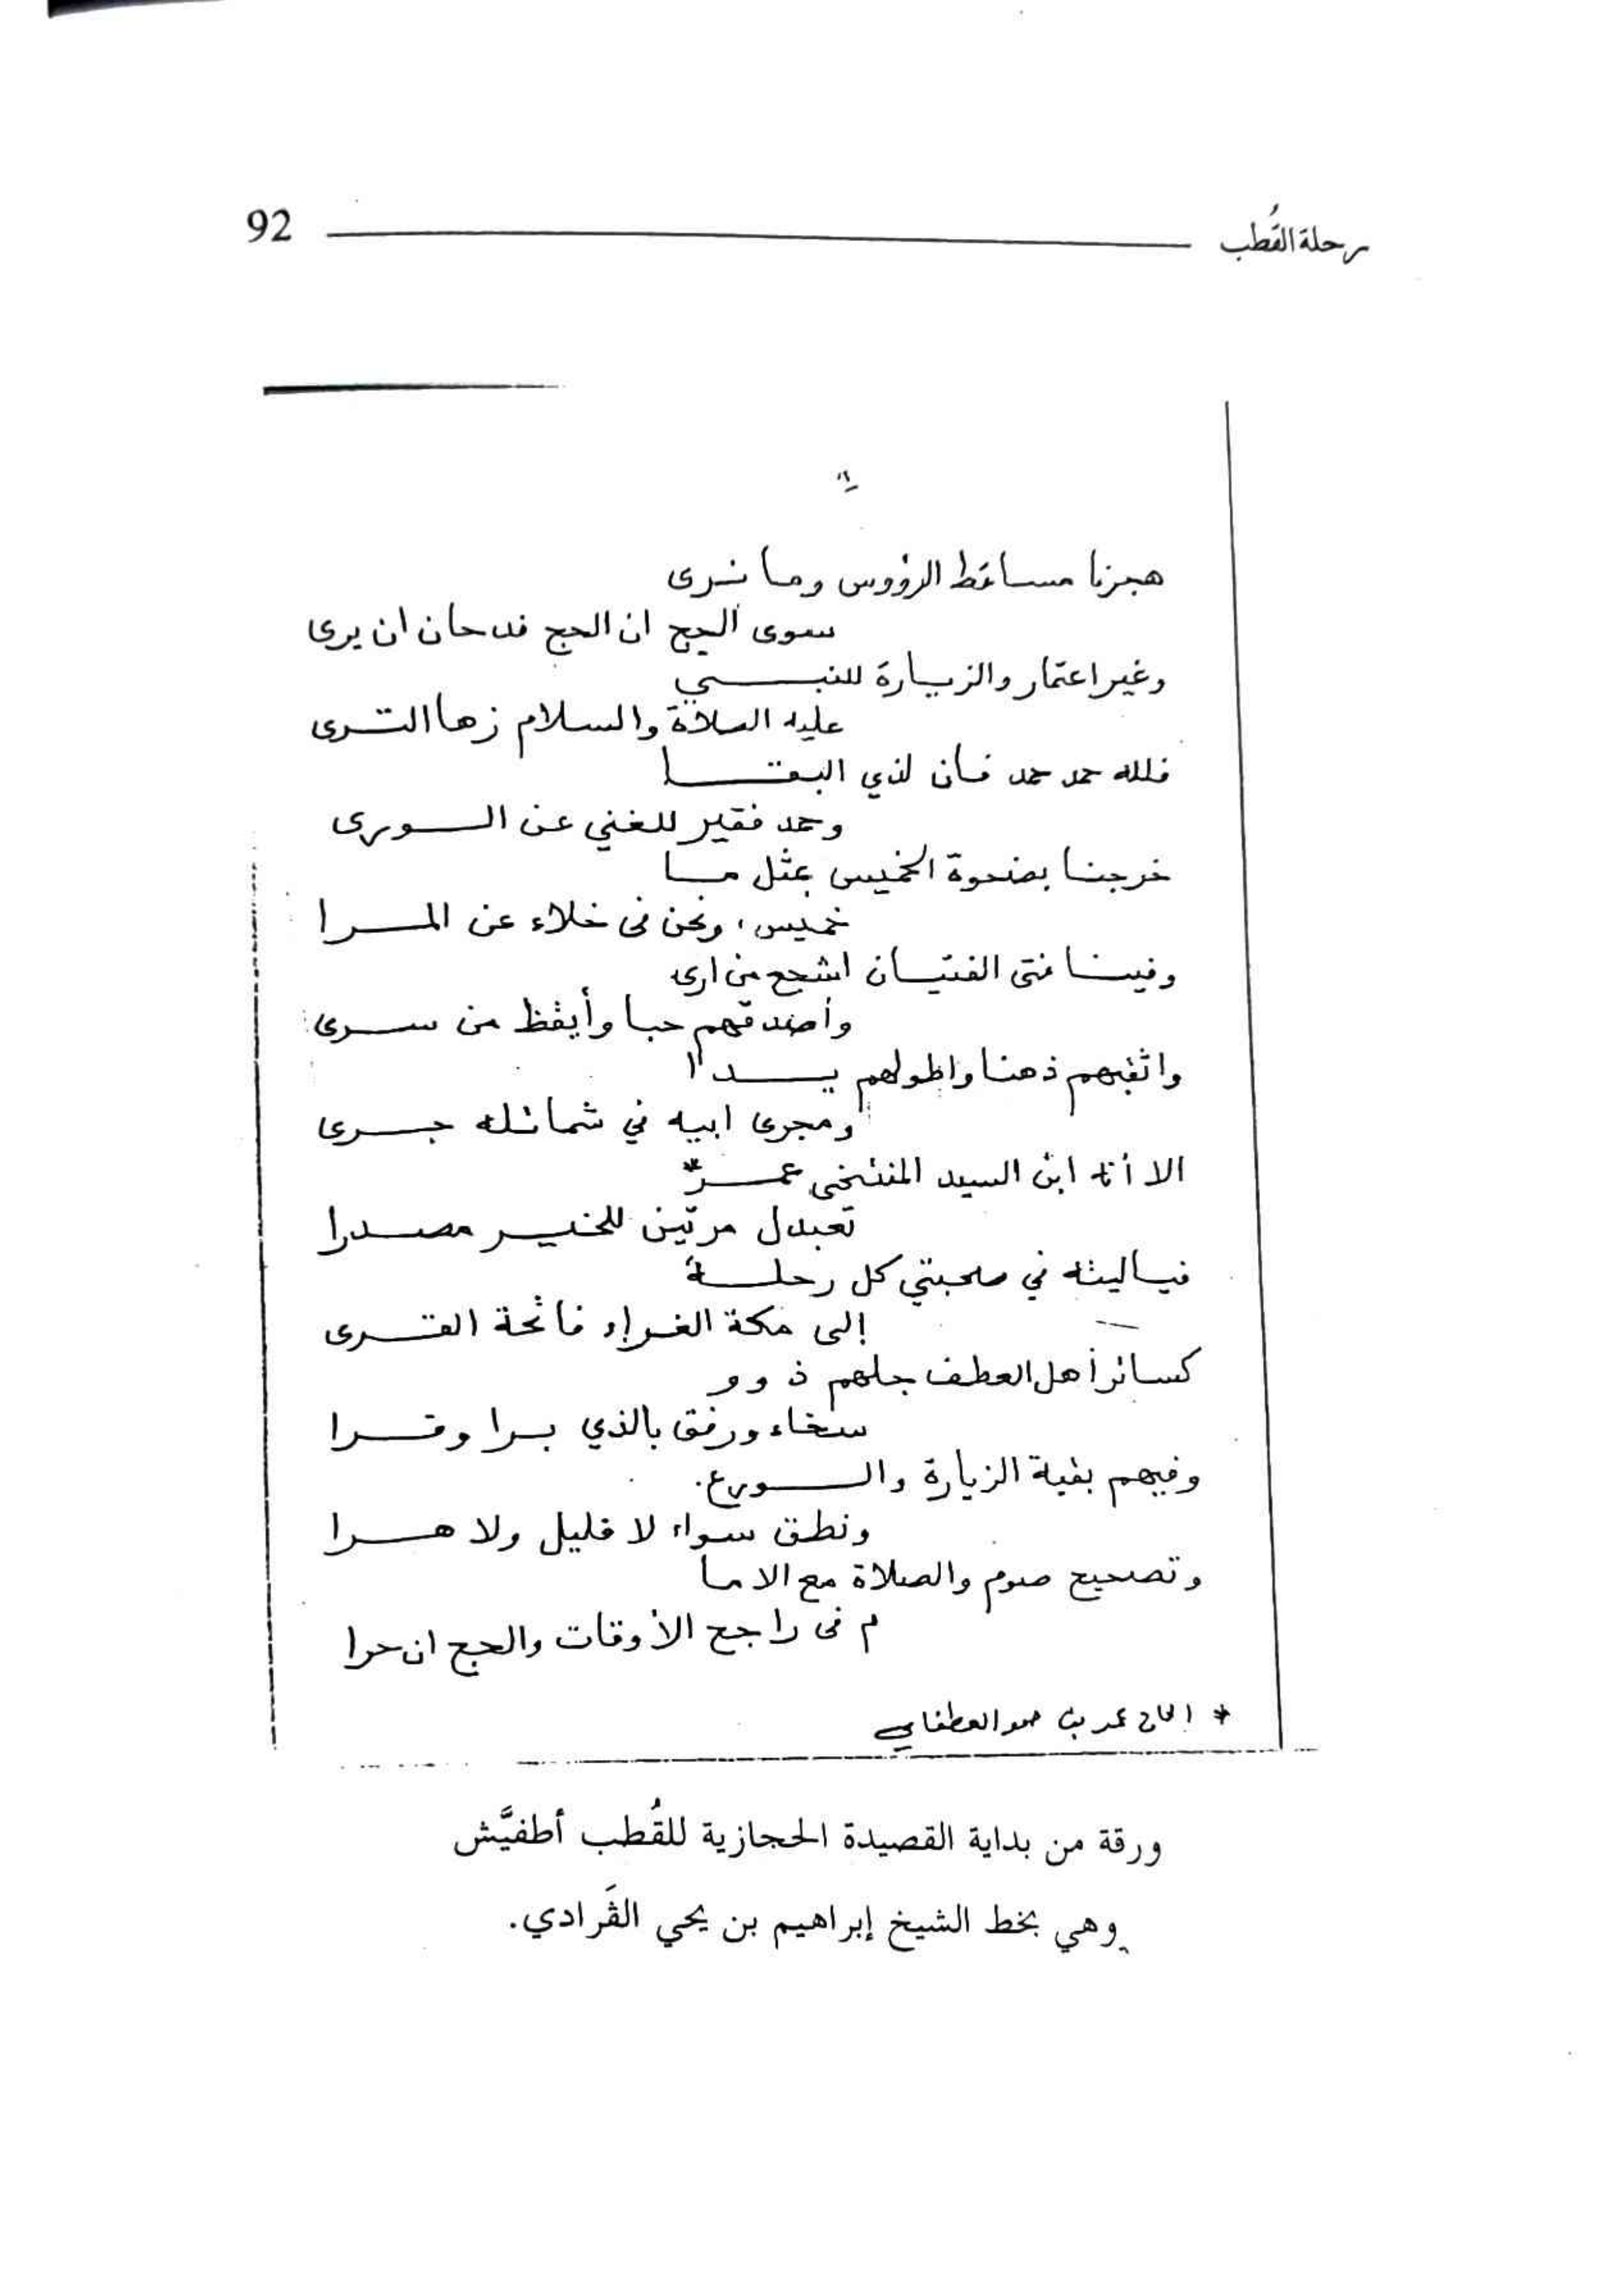 رحلة القُطب 92
هجرنا مساقط الرؤوس وما نرى
سوى الحج ان الحج قد حان ان يرى
وغير اعتمار والزيارة للنبي
عليه الصلاة والسلام زها الترى
فلله حمد حمد فان لذي البقا
وحمد فقير للغني عن الورى
خرجنا بضحوة الخميس بمثل ما
خميس، ونحن فى خلاء عن المرا
وفينا فتى الفتيان اشجع من ارى
وأصدقهم حبا وأيقظ من سرى
واثقبهم ذهنا واطولهم يدا
ومجرى ابيه في شمائله جرى
الا أنه ابن السيد المنتخى عمر*
تعبدل مرتين للخير مصدرا
فياليته في صحبتي كل رحلة
إلى مكة الغراء فاتحة القرى
كسائر أهل العطف جلهم ذوو
سخاء ورفق بالذي برا وقرا
وفيهم بقية الزيارة والورع.
ونطق سواء لا قليل ولا هرا
وتصحيح صوم والصلاة مع الاما
م فى راجح الأوقات والحج ان حرا
* الحاج عمر بن حمو العطفاوي
ورقة من بداية القصيدة الحجازية للقُطب أطفيَّش
وهي بخط الشيخ إبراهيم بن يحي القَرادي.